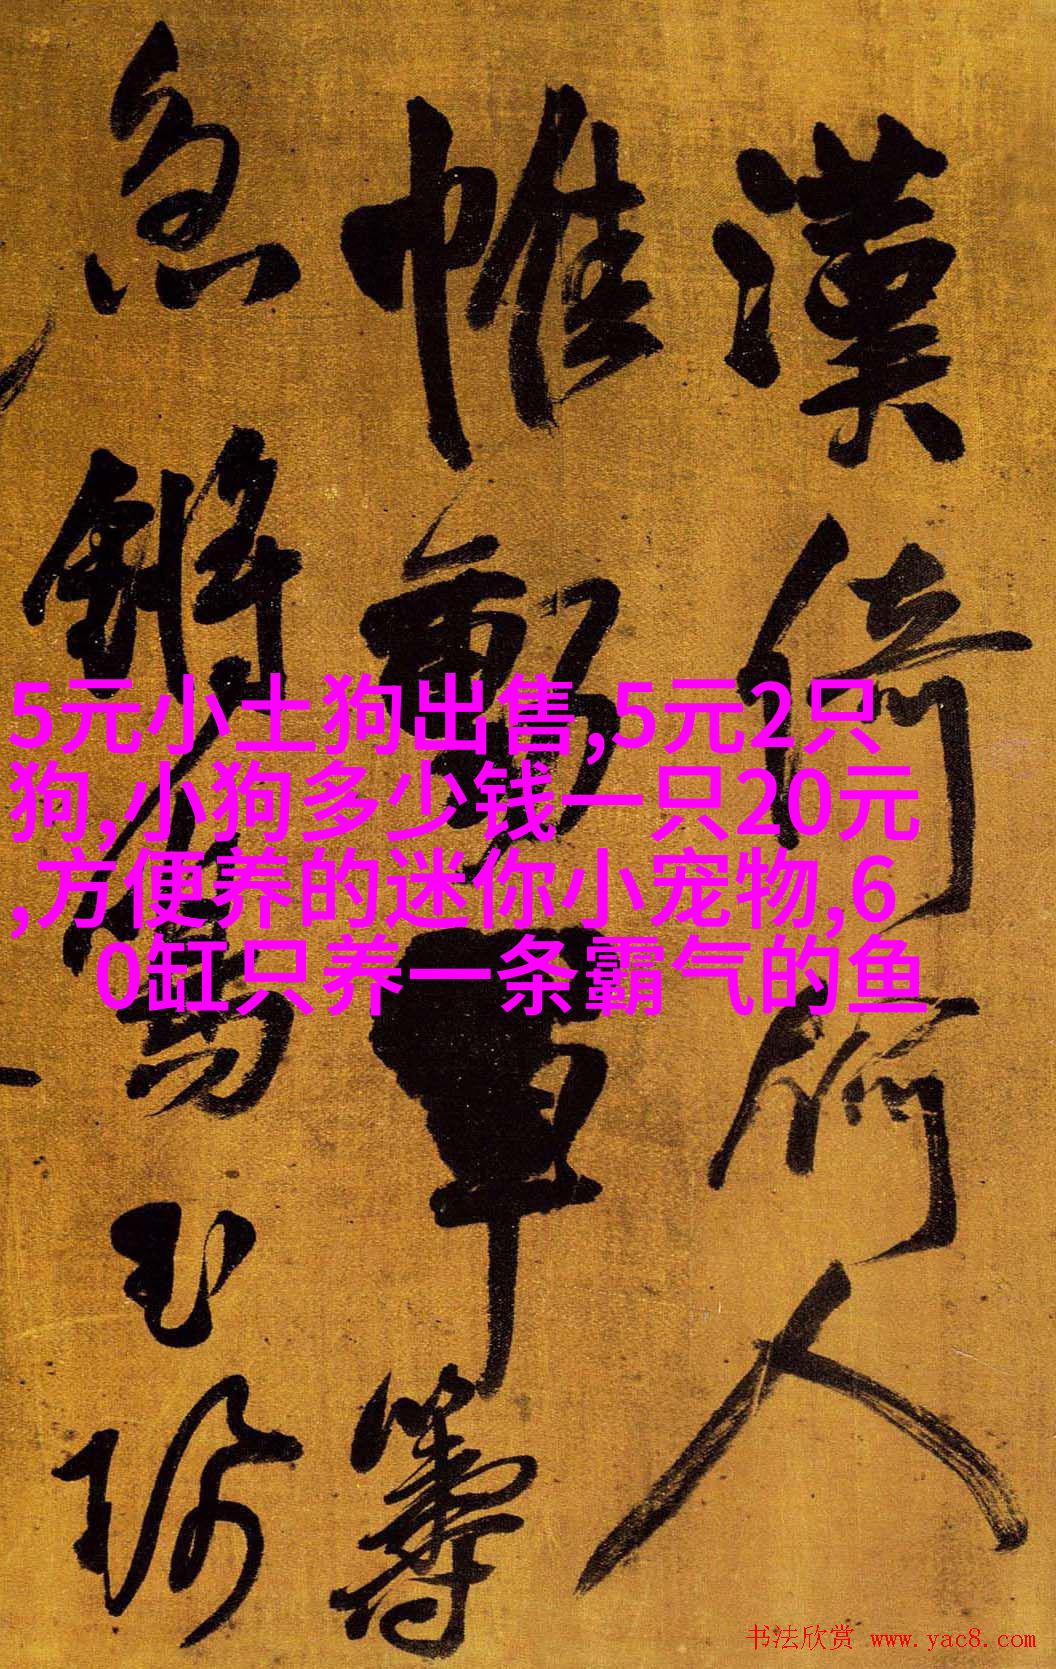 漢倚
人
帷
軍籌
急
馬玉珂
5元小土狗出售,5元2只
狗,小狗多少钱一只20元
,方便养的迷你小宠物,6
0缸只养一条霸气的鱼
书法欣赏 www.yac8.com